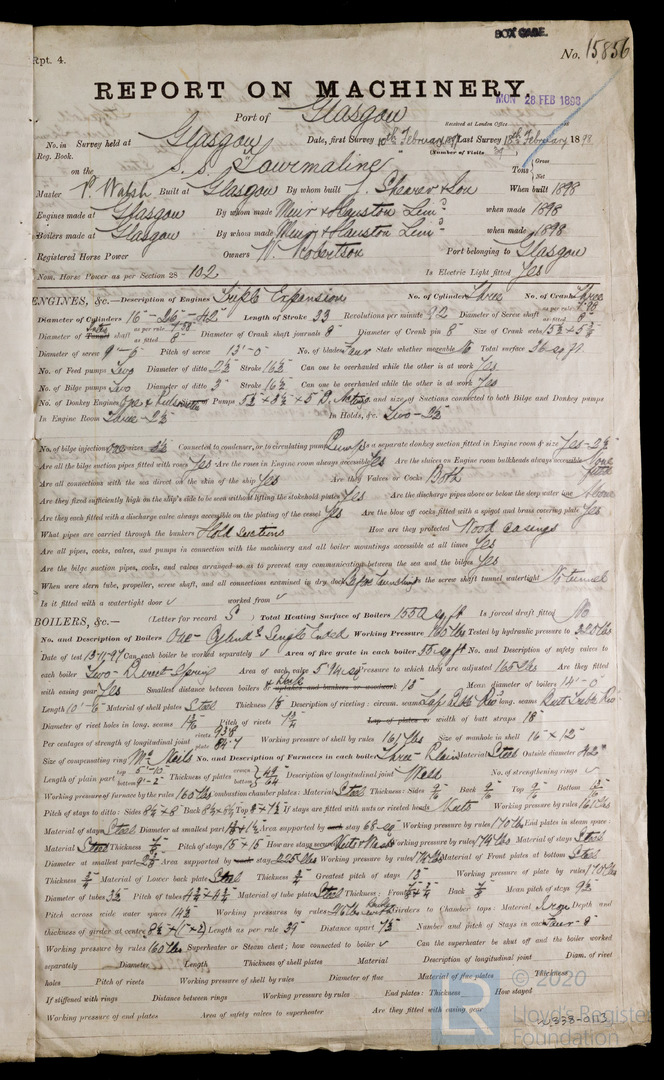 BOX CASE.
Rpt. 4.
No. 15856
REPORT ON MACHINERY.
MON 28 FEB 1898
Port of Glasgow
Received at London Office
No. in Survey held at Glasgow Date, first Survey February Last Survey 18th February 1898
Reg. Book.
(Number of Visits
on the S.S. "Tourmaline" Tons Gross Net
Master P. Walsh Built at Glasgow By whom built J. Shearer & Son When built 1898
Engines made at Glasgow By whom made Muir & Houston Limd. when made 1898
Boilers made at Glasgow By whom made Muir & Houston Limd. when made 1898
Registered Horse Power Owners W. Robertson Port belonging to Glasgow
Nom. Horse Power as per Section 28 102 Is Electric Light fitted Yes
ENGINES, &c.—Description of Engines Triple Expansion No. of Cylinders Three No. of Cranks Three
Diameter of Cylinders 16"-26"-42" Length of Stroke 33 Revolutions per minute 92 Diameter of Screw shaft as per rule as fitted
Diameter of Tunnel shaft as per rule 7.58" as fitted 8" Diameter of Crank shaft journals 8" Diameter of Crank pin 8" Size of Crank webs
Diameter of screw 9'-6" Pitch of screw 13'-0" No. of blades Four State whether moveable No Total surface 36 sq ft.
No. of Feed pumps Two Diameter of ditto 2½" Stroke 16½" Can one be overhauled while the other is at work Yes
No. of Bilge pumps Two Diameter of ditto 3" Stroke 16½" Can one be overhauled while the other is at work Yes
No. of Donkey Engines Pumps and size of Suctions connected to both Bilge and Donkey pumps
In Engine Room Three - 2½" In Holds, &c. Two - 2½"
No. of bilge injections One sizes Connected to condenser, or to circulating pump Pump Is a separate donkey suction fitted in Engine room & size Yes - 2½"
Are all the bilge suction pipes fitted with roses Yes Are the roses in Engine room always accessible Yes Are the sluices on Engine room bulkheads always accessible None fitted
Are all connections with the sea direct on the skin of the ship Yes Are they Valves or Cocks Both
Are they fixed sufficiently high on the ship's side to be seen without lifting the stokehold plates Yes Are the discharge pipes above or below the deep water line Above
Are they each fitted with a discharge valve always accessible on the plating of the vessel Yes Are the blow off cocks fitted with a spigot and brass covering plate Yes
What pipes are carried through the bunkers Hold suctions How are they protected Wood casings
Are all pipes, cocks, valves, and pumps in connection with the machinery and all boiler mountings accessible at all times Yes
Are the bilge suction pipes, cocks, and valves arranged so as to prevent any communication between the sea and the bilges Yes
When were stern tube, propeller, screw shaft, and all connections examined in dry dock Before launching Is the screw shaft tunnel watertight No tunnel
Is it fitted with a watertight door ✓ worked from ✓
BOILERS, &c.— (Letter for record S ) Total Heating Surface of Boilers 1550 sq ft Is forced draft fitted No
No. and Description of Boilers One - Cylindl. Single Ended Working Pressure 160 lbs Tested by hydraulic pressure to 320 lbs
Date of test Can each boiler be worked separately ✓ Area of fire grate in each boiler sq ft No. and Description of safety valves to
each boiler Two - Direct Spring Area of each valve 5.94 sq" Pressure to which they are adjusted 165 lbs Are they fitted
with easing gear Yes Smallest distance between boilers or uptakes and bunkers or woodwork 15" Mean diameter of boilers 14'-0"
Length 10'-6" Material of shell plates Steel Thickness Description of riveting: circum. seams Lap Dble Riv long. seams Butt Treble Riv
Diameter of rivet holes in long. seams Pitch of rivets Lap of plates or width of butt straps 18"
Per centages of strength of longitudinal joint rivets 93.8 plate 84.7 Working pressure of shell by rules 161 lbs Size of manhole in shell 16" x 12"
Size of compensating ring McNeils No. and Description of Furnaces in each boiler Three - Plain Material Steel Outside diameter 42"
Length of plain part top bottom Thickness of plates crown bottom Description of longitudinal joint Weld No. of strengthening rings ✓
Working pressure of furnace by the rules 160 lbs Combustion chamber plates: Material Steel Thickness: Sides 9/16" Back 9/16" Top 9/16" Bottom
Pitch of stays to ditto: Sides Back Top If stays are fitted with nuts or riveted heads Nuts Working pressure by rules 161 lbs
Material of stays Steel Diameter at smallest part Area supported by each stay 68 sq" Working pressure by rules 170 lbs End plates in steam space:
Material Steel Thickness Pitch of stays 15 x 15 How are stays secured Working pressure by rules Material of stays Steel
Diameter at smallest part Area supported by each stay Working pressure by rules Material of Front plates at bottom Steel
Thickness Material of Lower back plate Steel Thickness Greatest pitch of stays 13" Working pressure of plate by rules 170 lbs
Diameter of tubes 3½" Pitch of tubes Material of tube plates Steel Thickness: Front Back Mean pitch of stays
Pitch across wide water spaces 14½" Working pressures by rules Girders to Chamber tops: Material Iron Depth and
thickness of girder at centre Length as per rule Distance apart 7½" Number and pitch of Stays in each Four - 8"
Working pressure by rules 160 lbs Superheater or Steam chest; how connected to boiler ✓ Can the superheater be shut off and the boiler worked
separately Diameter Length Thickness of shell plates Material Description of longitudinal joint Diam. of rivet
holes Pitch of rivets Working pressure of shell by rules Diameter of flue Material of flue plates Thickness
If stiffened with rings Distance between rings Working pressure by rules End plates: Thickness How stayed
Working pressure of end plates Area of safety valves to superheater Are they fitted with easing gear
© 2020
Lloyd's Register
Foundation